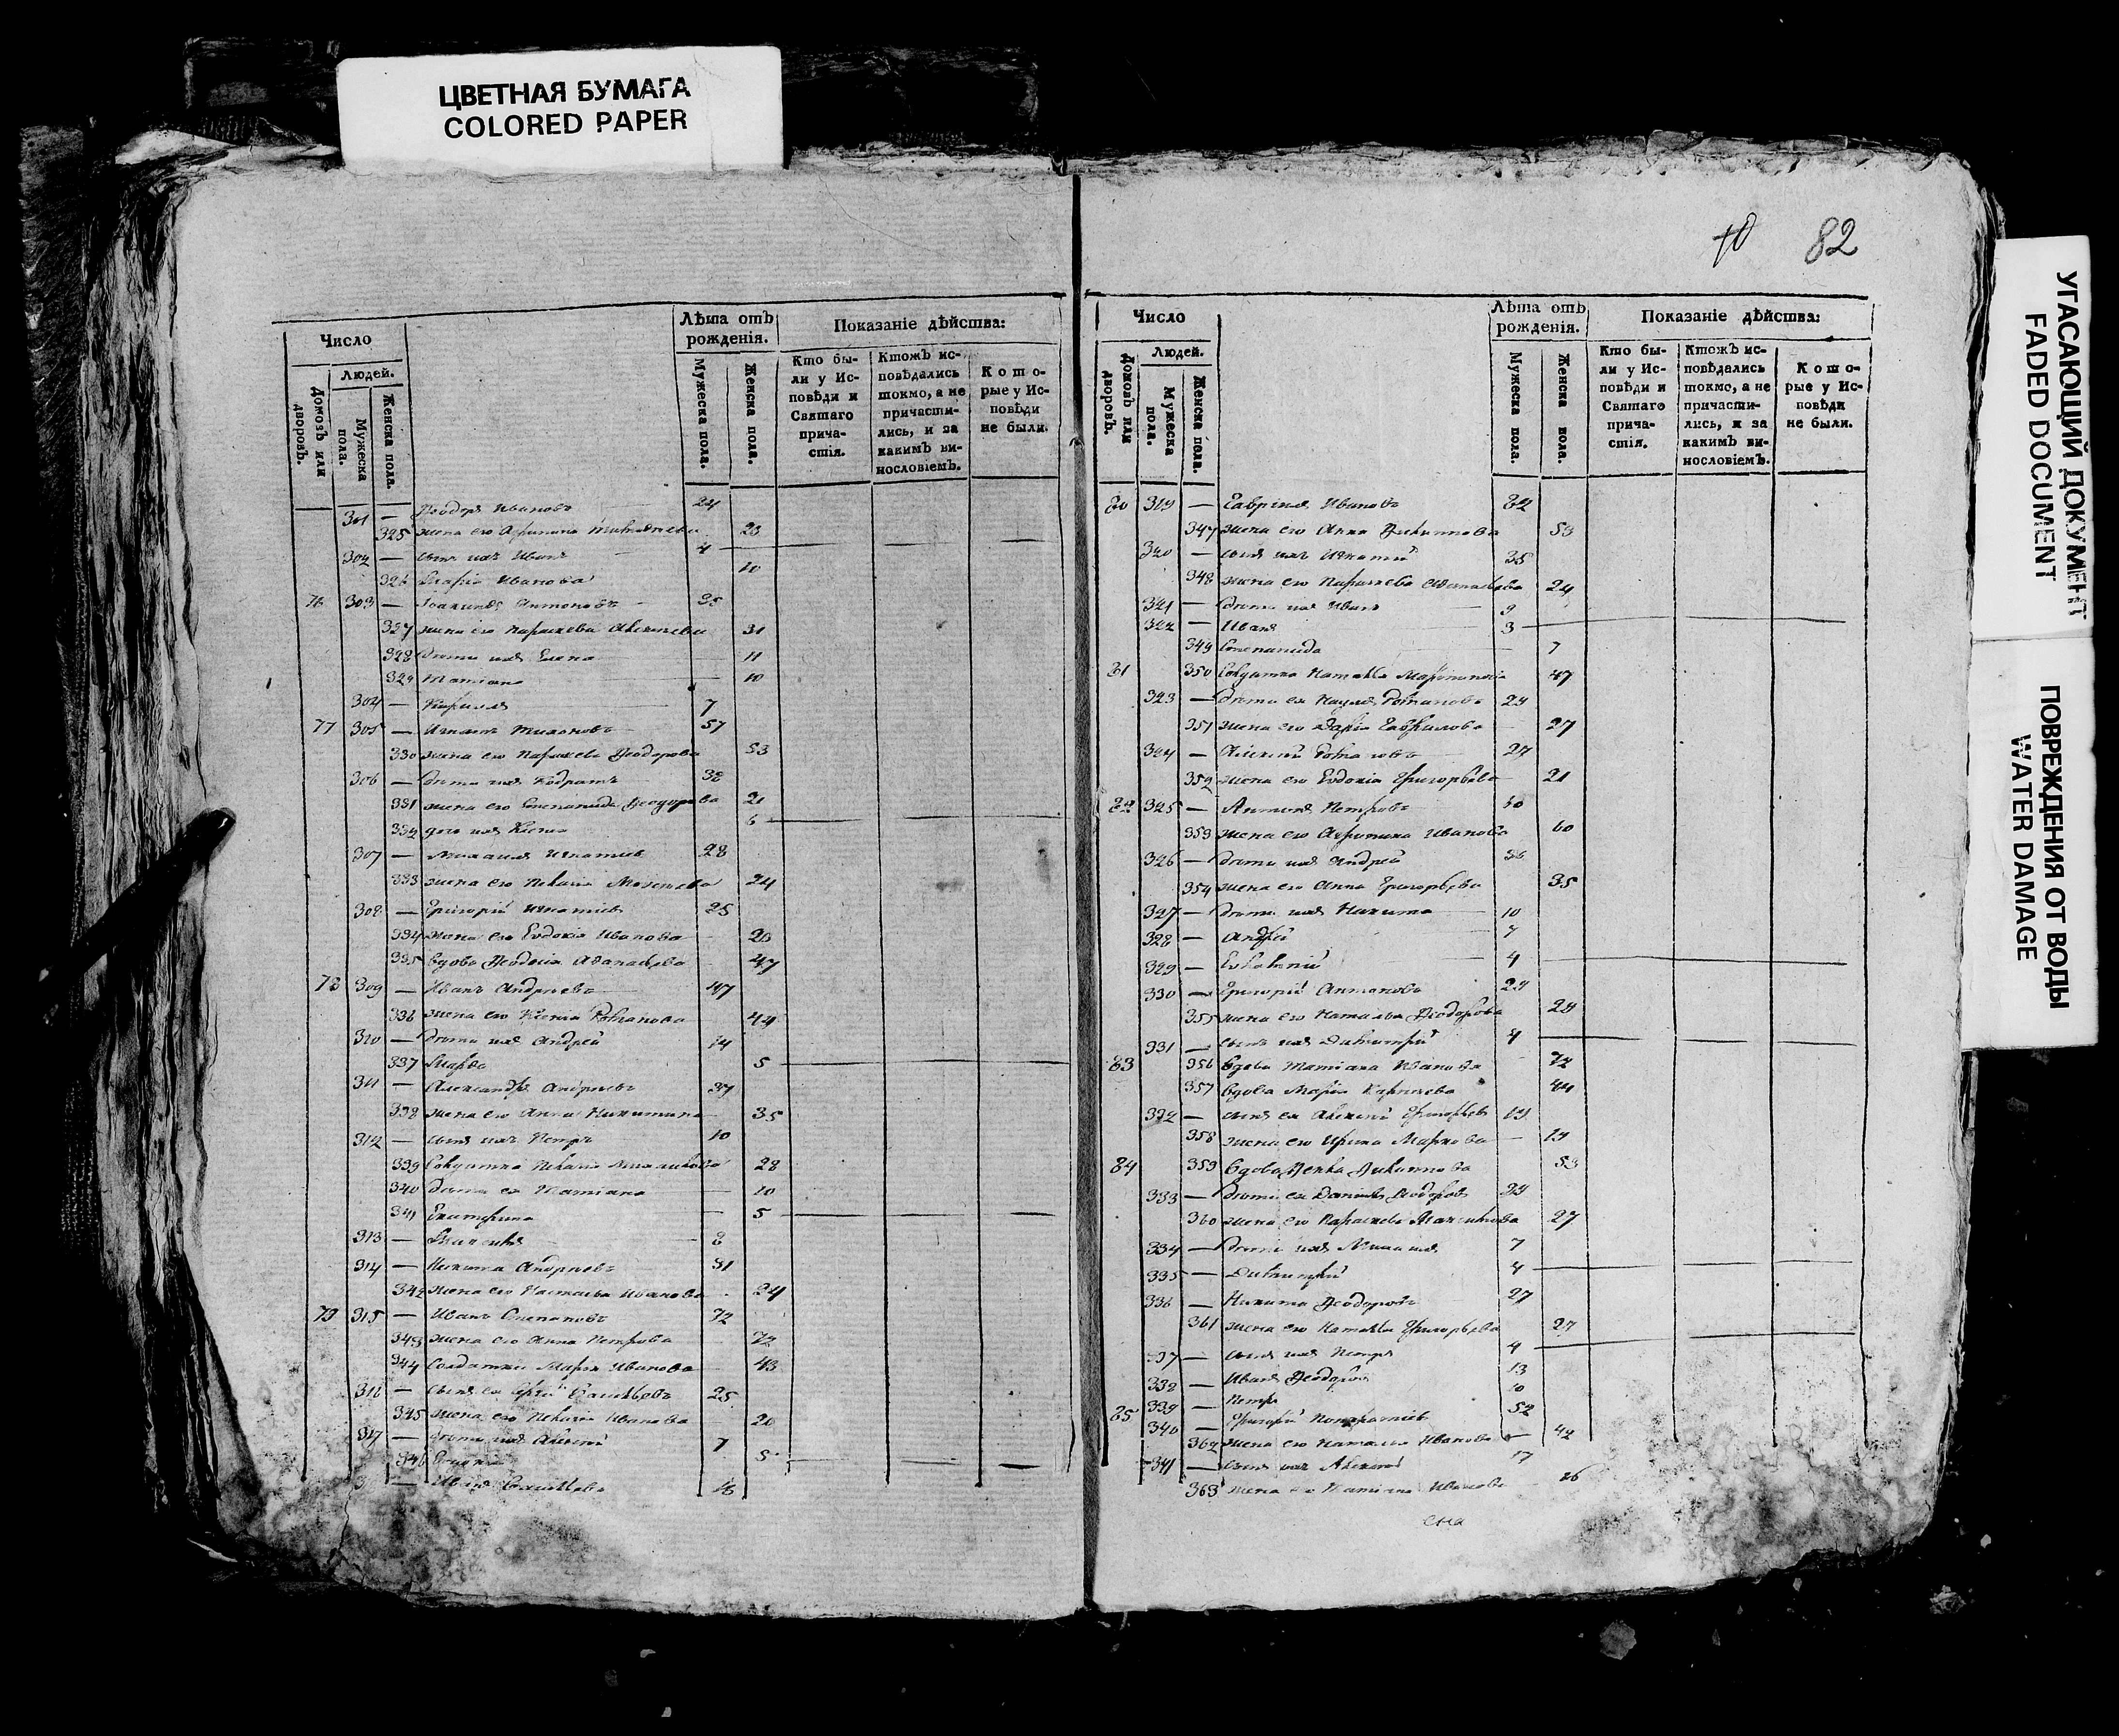 ЦВЕТНАЯ БУМАГА
COLORED PAPER
УГАСАЮЩИЙ ДОКУМЕНТ
FADED DOCUMENT
ПОВРЕЖДЕНИЯ ОТ ВОДЫ
WATER DAMAGE
82
Число
Людей.
Домовъ или дворовъ.
Мужеска пола.
Женска пола.
Лѣта отъ рожденія.
Мужеска пола.
Женска пола.
Показаніе дѣйства:
Кто бы-
ли у Ис-
повѣди и
Святаго
прича-
стія.
Ктожъ ис-
повѣдались
токмо, а не
причасти-
лись, и за
какимъ ви-
нословіемъ.
Кото-
рые у Ис-
повѣди
не были.
301 — Ѳеодоръ Ивановъ 24
325 жена его 23
302 — сынъ ихъ Иванъ 4
326 Марія Иванова 10
76 303 — Іоакимъ Антоновъ 35
327 жена его Параскева Алексѣева 31
328 дѣти ихъ Елена 11
329 Татіана 10
304 — Кириллъ 7
77 305 — Игнатъ Тихоновъ 57
330 жена его Параскева Ѳеодорова 53
306 — дѣти ихъ Кодратъ 32
331 жена его Степанида Ѳеодорова 21
332 дочь ихъ Ксенія 6
307 — Михаилъ Игнатіевъ 28
333 жена его Пелагія Моисеева 24
308 — Григорій Игнатіевъ 25
334 жена его Евдокія Иванова 20
335 вдова Ѳеодосія Аѳанасьева 47
78 309 — Иванъ Андреевъ 47
336 жена его Ксенія Романова 44
310 — дѣти ихъ Андрей 14
337 Марѳа 5
311 — Александръ Андреевъ 37
338 жена его Анна Никитина 35
312 — сынъ ихъ Петръ 10
339 Солдатка Пелагія Михайлова 28
340 дѣти ея Татіана 10
341 Екатерина 5
313 — 8
314 — Никита Андреевъ 31
342 жена его Настасья Иванова 24
79 315 — Иванъ Степановъ 72
343 жена его Анна Петрова 72
344 Солдатка Марѳа Иванова 43
316 — сынъ ея Сергій Васильевъ 25
345 жена его Пелагія Иванова 20
317 — дѣти ихъ Алексѣй 7
346 5
— Иванъ Васильевъ 18
Число
Людей.
Домовъ или дворовъ.
Мужеска пола.
Женска пола.
Лѣта отъ рожденія.
Мужеска пола.
Женска пола.
Показаніе дѣйства:
Кто бы-
ли у Ис-
повѣди и
Святаго
прича-
стія.
Ктожъ ис-
повѣдались
токмо, а не
причасти-
лись, и за
какимъ ви-
нословіемъ.
Кото-
рые у Ис-
повѣди
не были.
80 319 — Гавріилъ Ивановъ
347 жена его Анна Филиппова 53
320 — сынъ ихъ Игнатій 35
348 жена его Параскева 24
321 — дѣти ихъ Иванъ 9
322 — Иванъ 3
349 Степанида 7
81 350 Солдатка Наталья 47
323 — дѣти ея Наумъ Романовъ 29
351 жена его Дарія Гаврилова 27
324 — Алексѣй Романовъ 27
352 жена его Евдокія Григорьева 21
82 325 — Антонъ Петровъ 60
353 жена его Иванова 60
326 — дѣти ихъ Андрей 36
354 жена его Анна Григорьева 35
327 — дѣти ихъ Никита 10
328 — Андрей 7
329 — 4
330 — Григорій Антоновъ 29
355 жена его Наталья Ѳеодорова 28
331 — сынъ ихъ Димитрій 4
83 356 вдова Татіана Иванова 72
357 вдова Марія 44
332 — сынъ ея Алексѣй Григорьевъ 19
358 жена его Ирина Маркова 19
84 359 вдова Ѳекла Филиппова 53
333 — дѣти ея Даніилъ Ѳеодоровъ
360 жена его Параскева Максимова 27
334 — дѣти ихъ Михаилъ 7
335 — Димитрій 4
336 — Никита Ѳеодоровъ 27
361 жена его Наталья Григорьева 27
337 — сынъ ихъ Петръ 4
338 — Иванъ Ѳеодоровъ 13
339 — Петръ 10
85 340 — Григорій 52
362 жена его Наталья Иванова 42
341 — сынъ ихъ Алексѣй 17
363 жена его Татіана Иванова 26